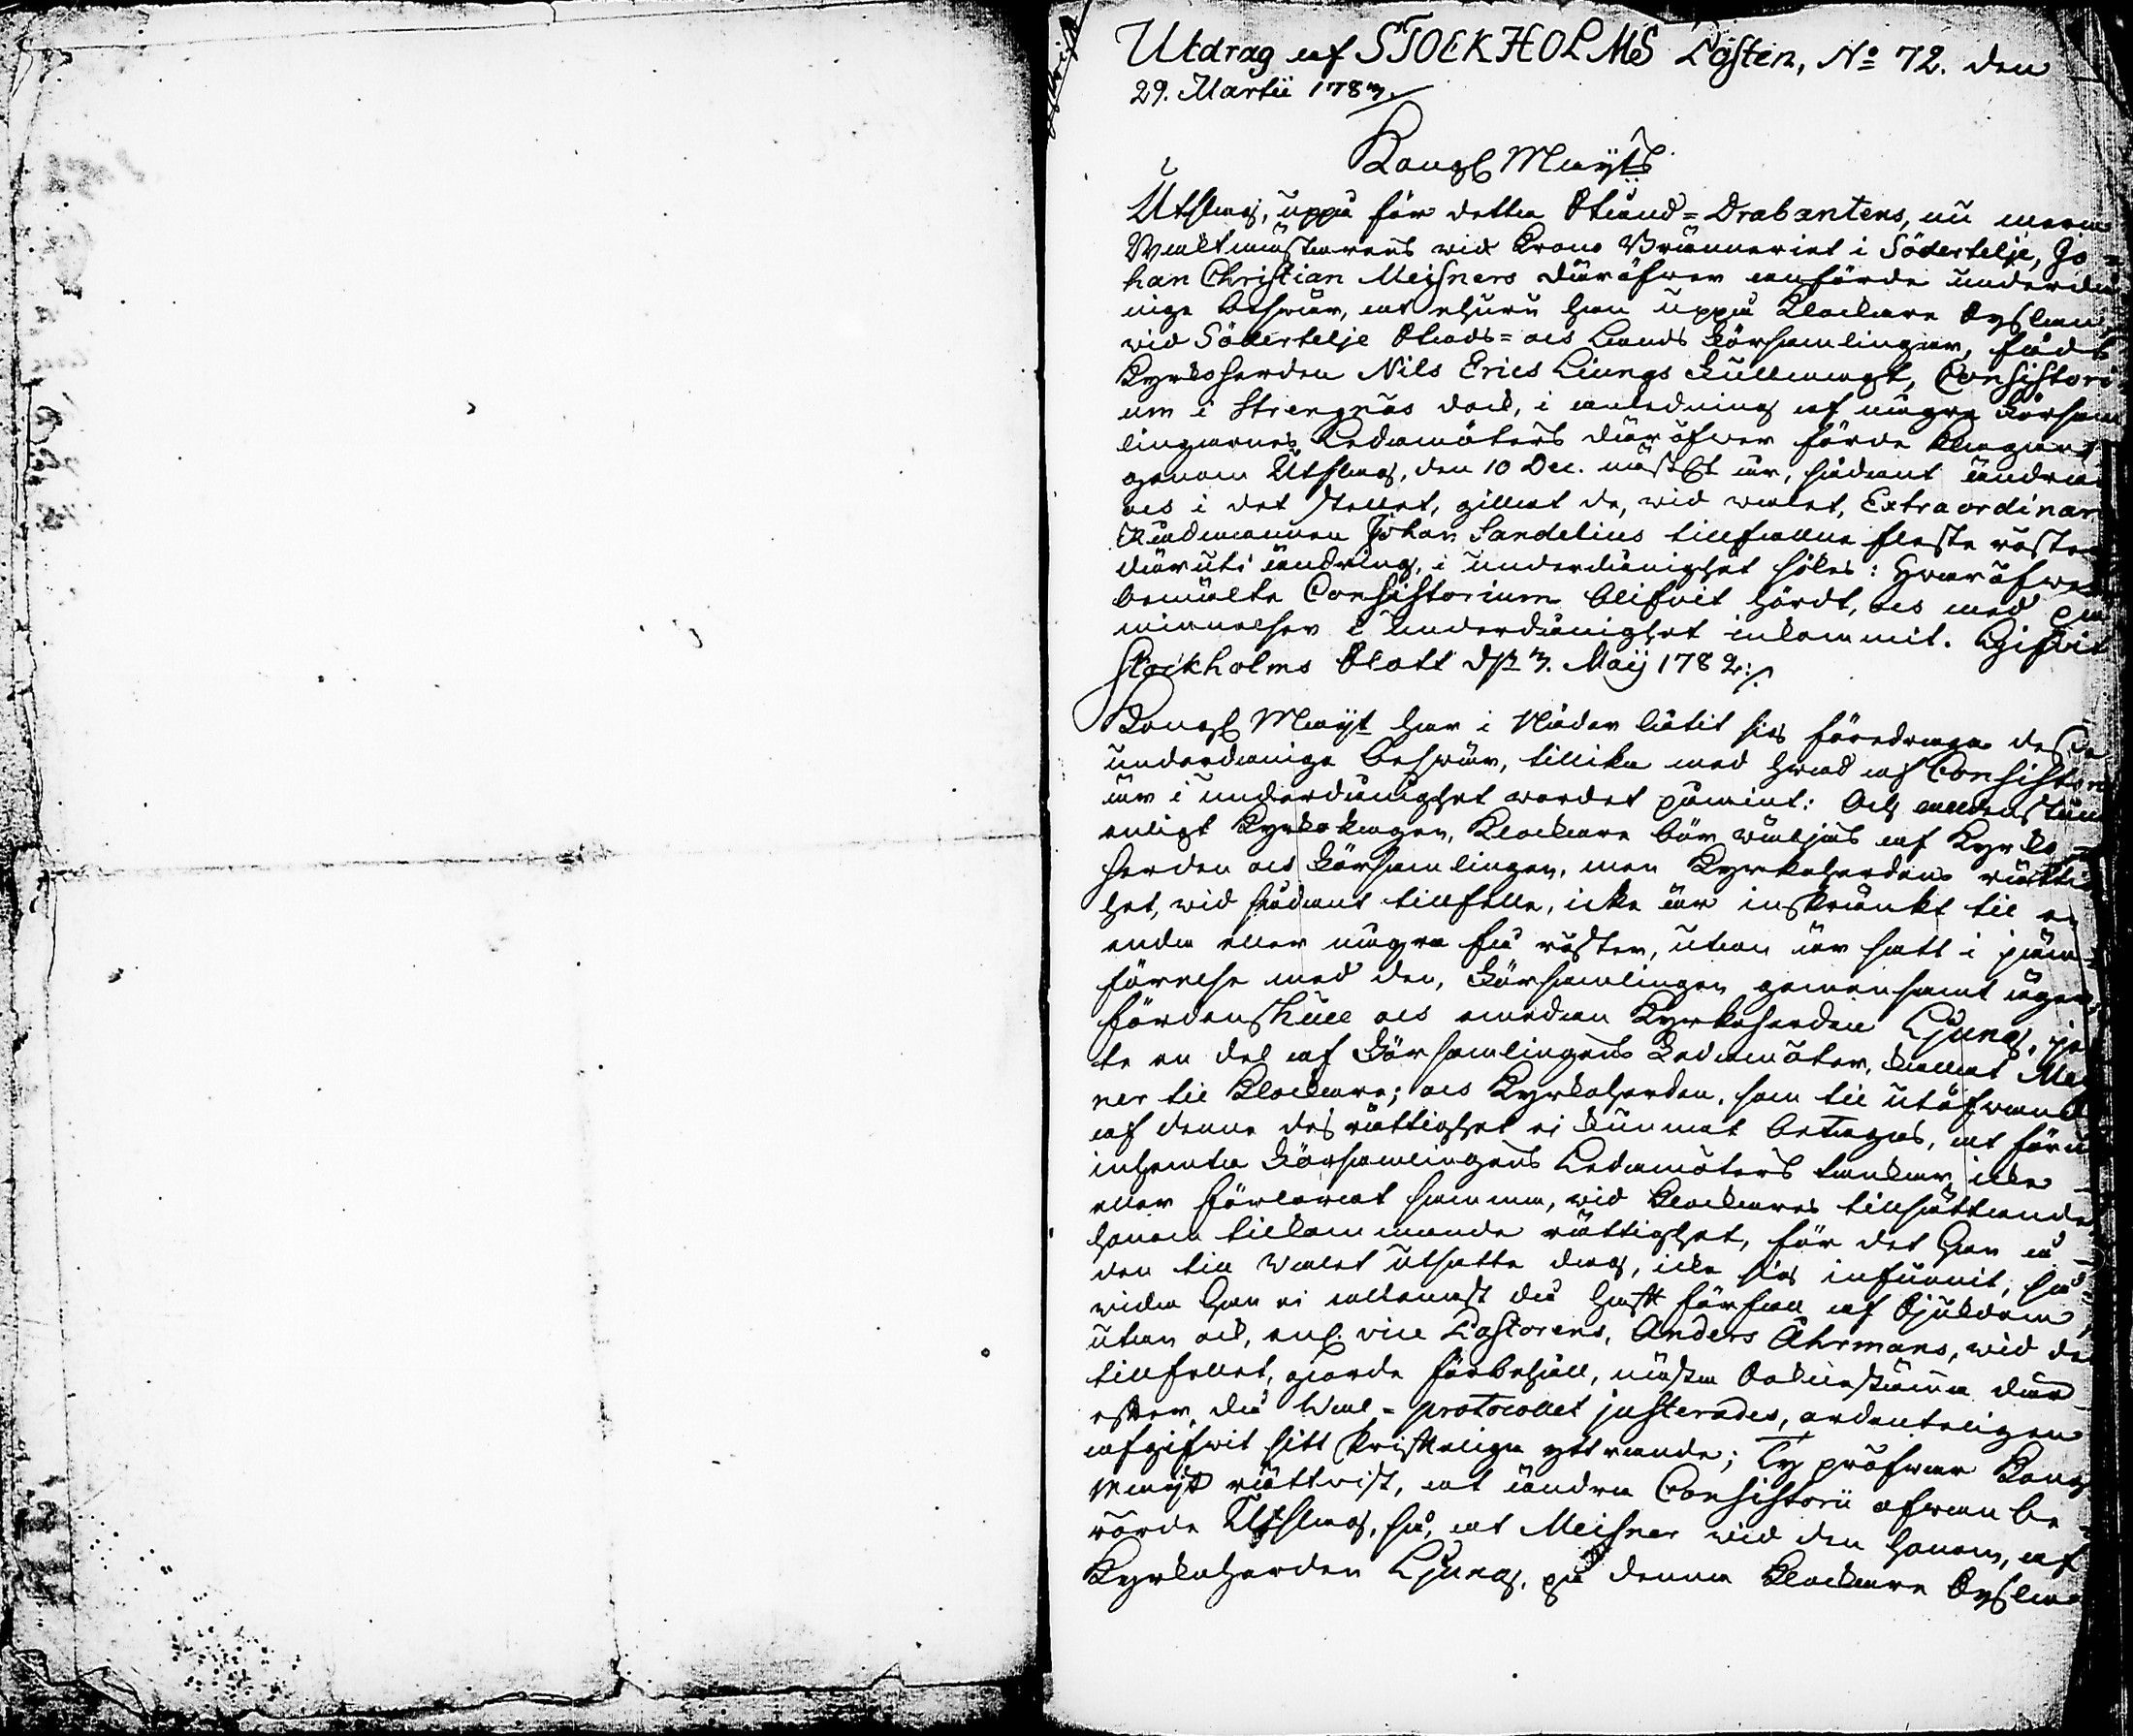 Utdrag af STOCKHOLMS Posten, No 72. den
29. Martii 1783.
Kongl Mayts
Utslag, uppå för detta Stånd=Drabantens, nu mera
Waktmästarens wid Krono Bränneriet i Södertelje, Jo=
han Christian Meisners däröfwer anförde underdå
nige beswär, at ehuru han uppå Klockare Syslan
wid Södertelje Stads= ock Lands Församlingar, fådt
Kyrkoherden Nils Erics Liungs Fullmagt, Consistori
um i Strengnäs dock, i anledning af några Försam
lingarnes Ledamöters däröfwer förde klagan
genom Utslag, den 10 Dec. näst År, sådant ändrat
ock i det stället, gillat de, wid walet, Extraordinar
Rådmannen Johan Sandelius tillfallne fleste röster
däruti ändring, i underdånighet sökes: Hwaröfwer
bemälte Consistorium blifwit hördt, ock med på
minnelser i underdånighet inkommit. Gifwit
Stockholms Slott d. 3. Maij 1782:/.
Kongl Mayt har i Nåder låtit sig föredragas dessa
underdånige beswär, tillika med hwad af Consistori
um i underdånighet wordet påmint: Och alldenstund
enligt Kyrkolagen, Klockare bör wäljas af Kyrko=
herden ock Församlingen, men Kyrkoherdens rättig
het, wid sådant tillfälle, icke är inskränkt til en
enda eller några få röster, utan är satt i jäm=
förelse med den, Församlingen gemensamt äger,
fördenskull ock emedan Kyrkoherden Ljung, jä
te en del af Församlingens Ledamöter, kallat Meis
ner til Klockare; ock Kyrkoherden, som til utöfwande
af denna des rättighet ej kunnat betagas, at förut
inhemta Församlingens Ledamöters tankar, icke
eller förlorat samma, wid Klockares tillsättande
honom tillkommande rättighet, för det han å
den til Walet utsatte dag, icke sig infunnit, så
wida han ej allenast då haft förfall af sjukdom,
utan ock, enl. vice Pastorens, Anders Åhrmans, wid de
tillfället, giorde förbehåll, nästa Sockenstämma där=
efter, då Wal=protocollet justerades, ordenteligen
afgifwit sitt skrifteliga yttrande; Ty pröfwar Kongl
Mayt rättwist, at ändra Consistorii ofwan be=
rörde Utslag, så, at Meisner wid den honom, af
Kyrkoherden Ljung, på denna Klockare Syslan